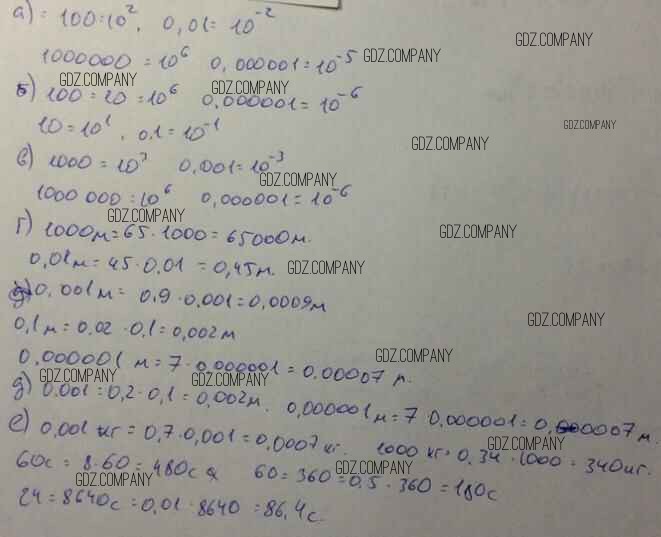 а) = 100=10², 0,01=10⁻²
1000000 = 10⁶ 0,000001=10⁻⁵ GDZ.COMPANY
GDZ.COMPANY
GDZ.COMPANY GDZ.COMPANY
б) 100=10=10⁶ 0,000001=10⁻⁶
GDZ.COMPANY
10=10¹, 0,1=10⁻¹
GDZ.COMPANY
в) 1000=10³ 0,001=10⁻³
GDZ.COMPANY
1000 000=10⁶ 0,000001=10⁻⁶
GDZ.COMPANY
г) 1000м=65·1000=65000м.
GDZ.COMPANY
0,01м=45·0,01=0,45м. GDZ.COMPANY
0,001м= 0,9·0,001=0,0009м
GDZ.COMPANY
0,1м=0,02·0,1=0,002м
0,000001 м=7·0,000001=0,00007 м.
GDZ.COMPANY
GDZ.COMPANY GDZ.COMPANY
д) 0,001=0,2·0,1=0,002м. 0,000001м=7·0,000001=0,000007м.
е) 0,001 кг=0,7·0,001=0,0007кг. 1000 кг=0,34·1000=340кг.
GDZ.COMPANY
60с=8·60=480с 60=360=0,5·360=180с
GDZ.COMPANY GDZ.COMPANY
24=8640с=0,01·8640=86,4с